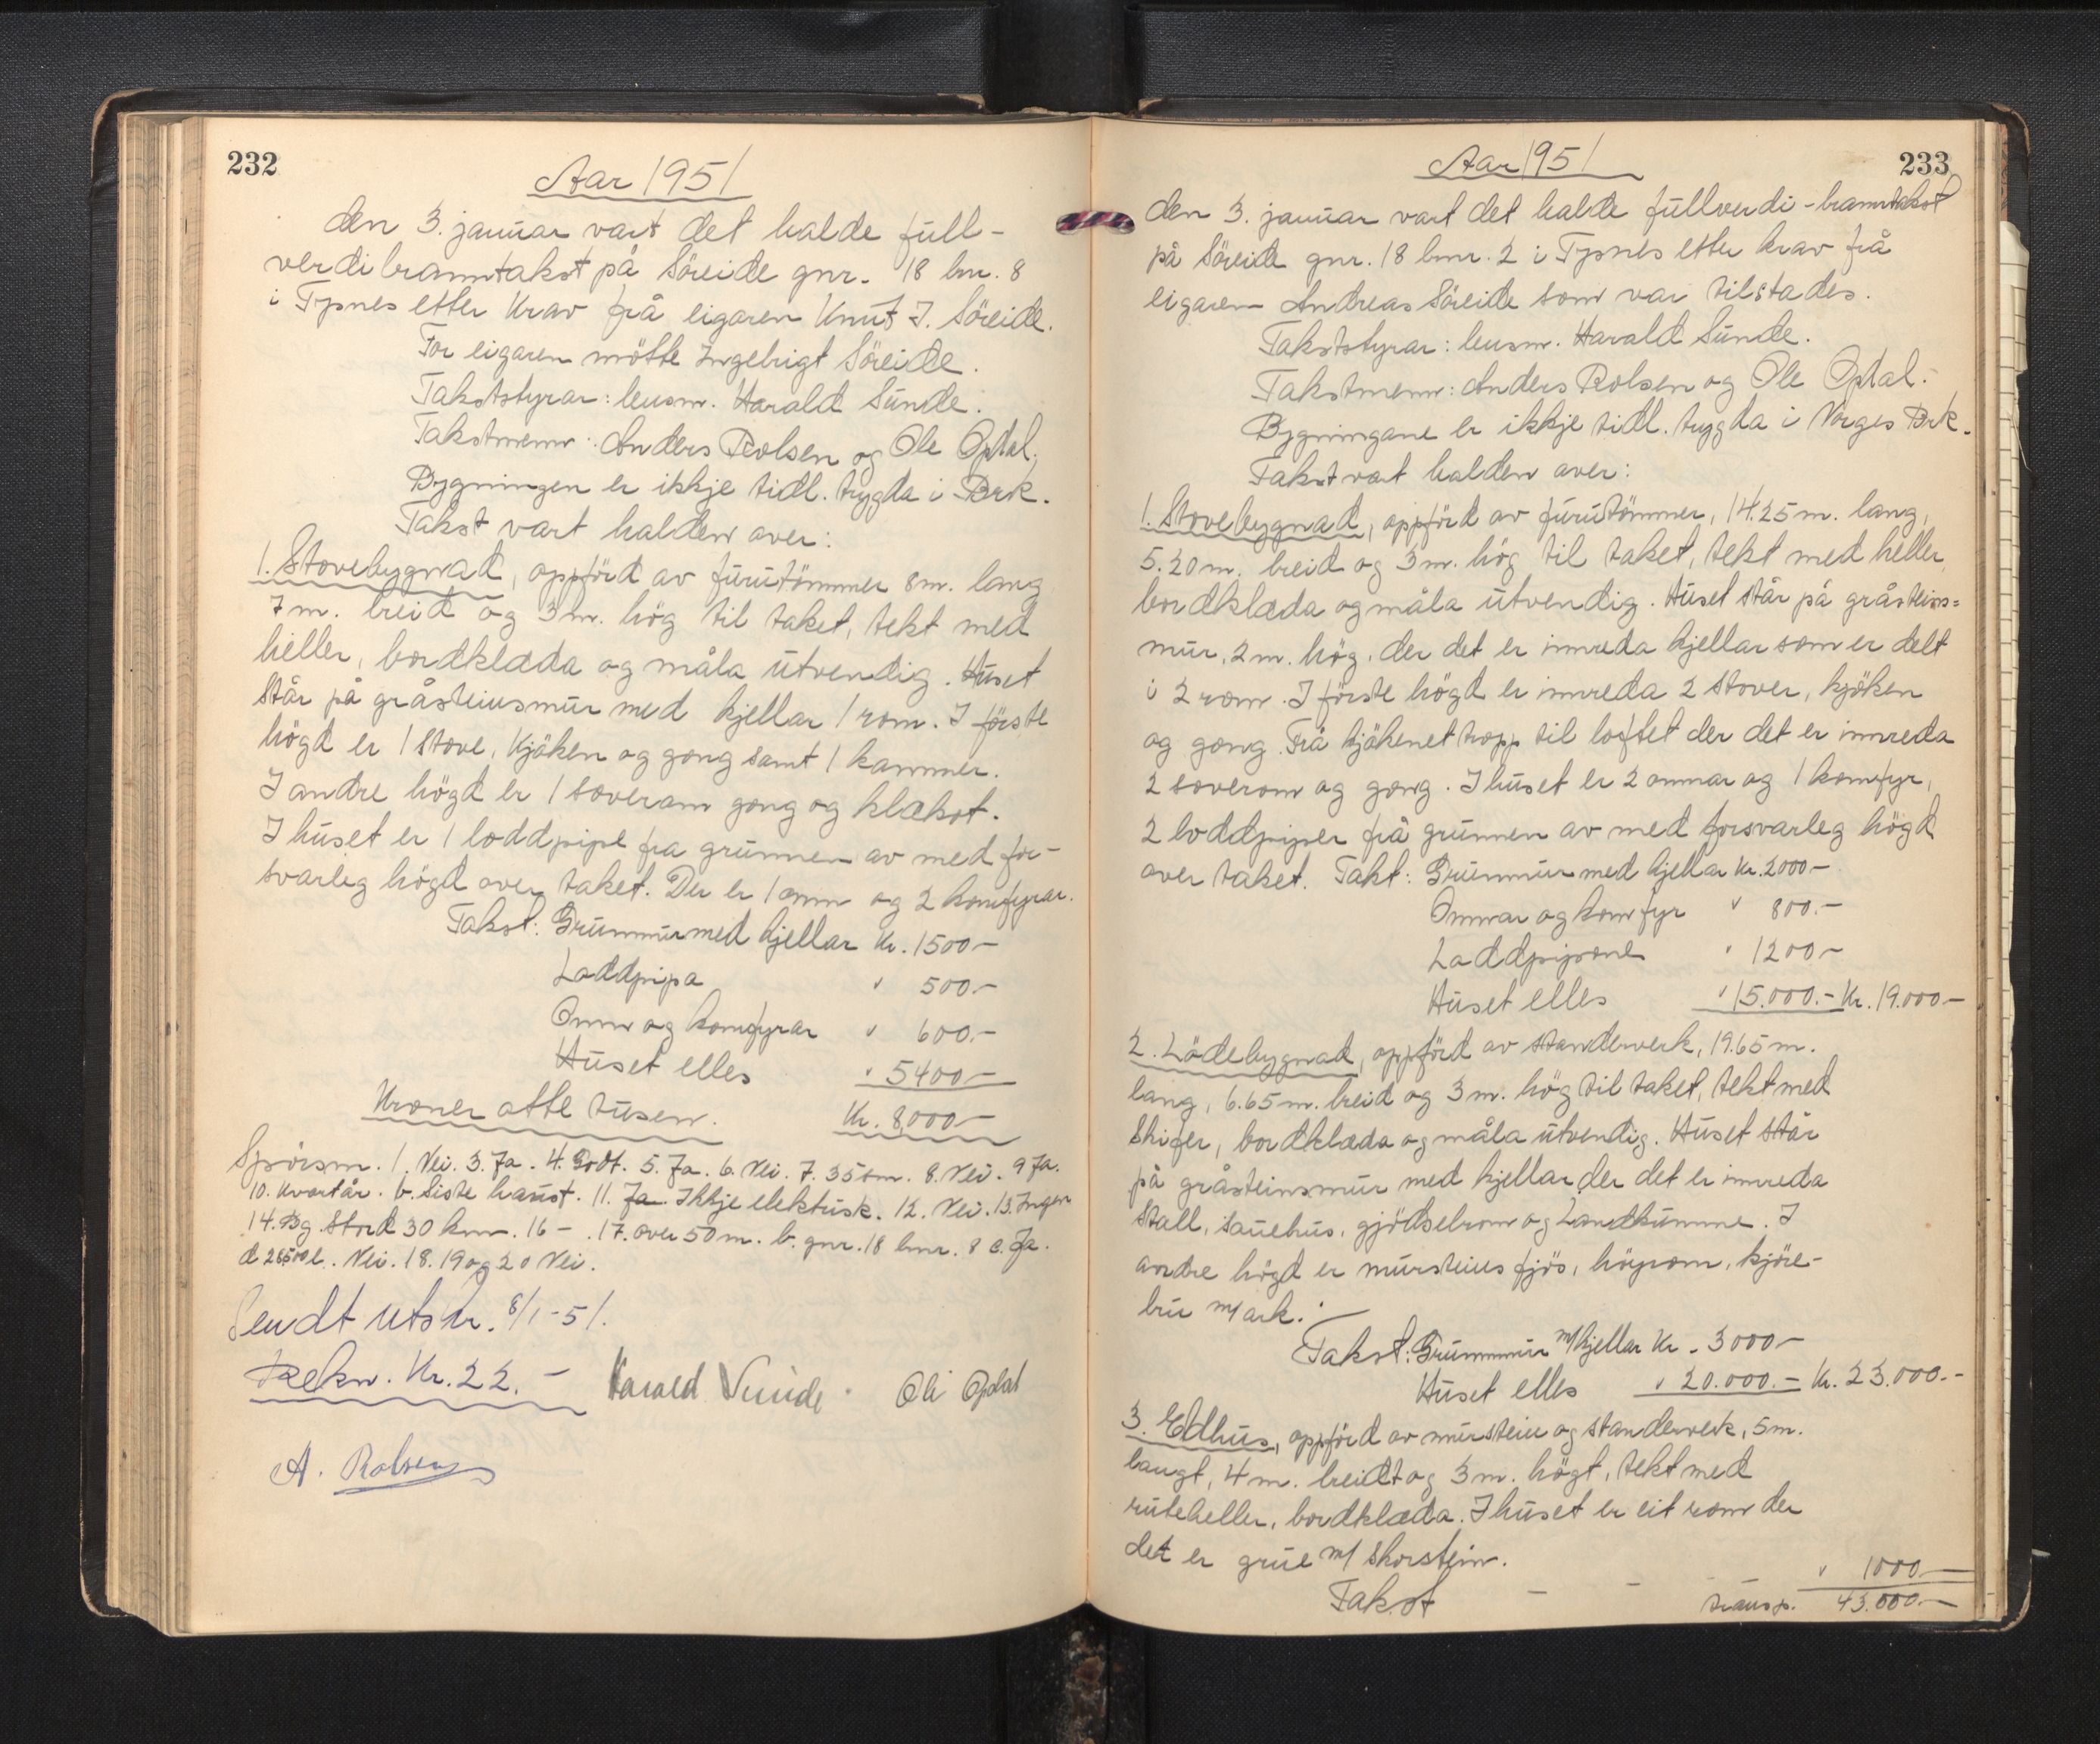 232
Aar 1951
den 3. januar vart det halde full-
verdibranntakst på Söreide gnr. 18 bnr. 8
i Tysnes etter krav frå eigaren Knut J. Söreide.
For eigaren mötte Ingebrigt Söreide.
Takststyrar: lensm. Harald Sunde.
Takstmenn: Anders Rolsen og Ole Opdal.
Bygningen er ikkje tidl. trygda i Brk.
Takst vart halden over:
1. Stovebygnad, oppförd av furutömmer 8 m. lang
7 m. breid og 3 m. hög til taket, tekt med
heller, bordklæda og måla utvendig. Huset
står på gråsteinsmur med kjellar 1 rom. I förste
högd er 1 stove, kjöken og gong samt 1 kammer.
I andre högd er 1 soverom gong og klækot.
I huset er 1 loddpipe fra grunnen av med for-
svarleg högd over taket. Der er 1 omn og 2 komfyrar.
Takst: Grunnmur med kjellar Kr. 1500 –
Loddpipa " 500.–
Omn og komfyrar " 600.–
Huset elles " 5400 –
Kroner otte tusen. Kr. 8,000 –
Spörsm. 1. Nei. 3. Ja. 4. Godt. 5. Ja. 6. Nei. 7. 35 om. 8. Nei. 9 Ja.
10. Kvartår. b. Siste haust. 11. Ja. Ikkje elektrisk. 12. Nei. 13. Ingen
14. Bg. Stord 30 km. 16 – . 17. over 50 m. b. gnr. 18 bnr. 8 c. Ja.
d 2 Nei. 18. 19 og 20 Nei.
Sendt utskr. 8/1-51.
Rekn. Kr. 22. – Harald Sunde. Ole Opdal
A. Rolsen
233
Aar 1951
den 3. januar vart det halde fullverdi-branntakst
på Söreide gnr. 18 bnr. 2 i Tysnes etter krav frå
eigaren Andreas Söreide som var tilstades.
Takststyrar: lensm. Harald Sunde.
Takstmenn: Anders Rolsen og Ole Opdal.
Bygningane er ikkje tidl. trygda i Norges Brk.
Takst vart halden over:
1. Stovebygnad, oppförd av furutömmer, 14.25 m. lang,
5.20 m. breid og 3 m. hög til taket, tekt med heller,
bordklæda og måla utvendig. Huset står på gråsteins=
mur, 2 m. hög, der det er innreda kjellar som er delt
i 2 rom. I förste högd er innreda 2 stover, kjöken
og gong. Frå kjökenet tropp til loftet der det er innreda
2 soverom og gong. I huset er 2 omnar og 1 komfyr,
2 loddpiper frå grunnen av med forsvarleg högd
over taket. Takt: Grunnmur med kjellar Kr. 2000 –
Omnar og komfyr " 800.–
Loddpipone " 1200 –
Huset elles " 15.000.– Kr. 19.000 –
2. Lödebygnad, oppförd av standerverk, 19.65 m.
lang, 6.65 m. breid og 3 m. hög til taket, tekt med
Skifer, bordklæda og måla utvendig. Huset står
på gråsteinsmur med kjellar der det er innreda
stall, sauehus, gjödselrom og Landkumme. I
andre högd er mursteins fjös, höyrom, kjöre-
bru m/ ark.
Takst: Grunnmur m/ kjellar Kr. 3000 –
Huset elles " 20.000.– Kr. 23.000.–
3. Eldhus, oppförd av murstein og standerverk, 5 m.
langt, 4 m. breidt og 3 m. högt, tekt med
ruteheller, bordklæda. I huset er eit rom der
det er grue m/ skorstein.
Takst – – " 1000 –
transp. 43.000 –